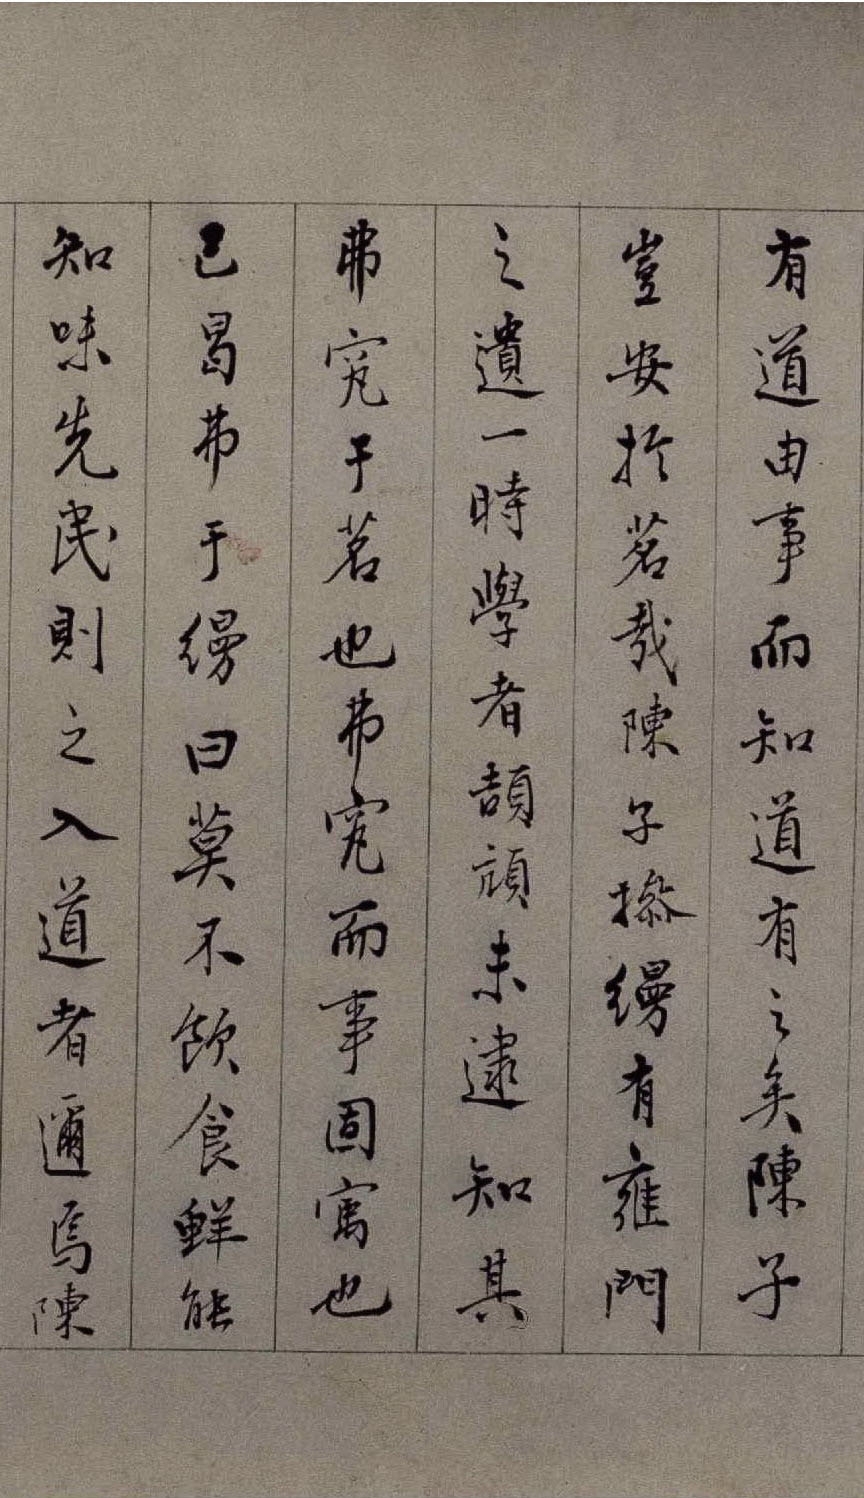 有道由事而知道有之矣陳子
豈安於茗哉陳子操縵有雍門
之遺一時學者頡頏未逮知其
弗究于茗也弗究而事固寓也
已曷弗于縵曰莫不飲食鮮能
知味先民則之入道者邇焉陳